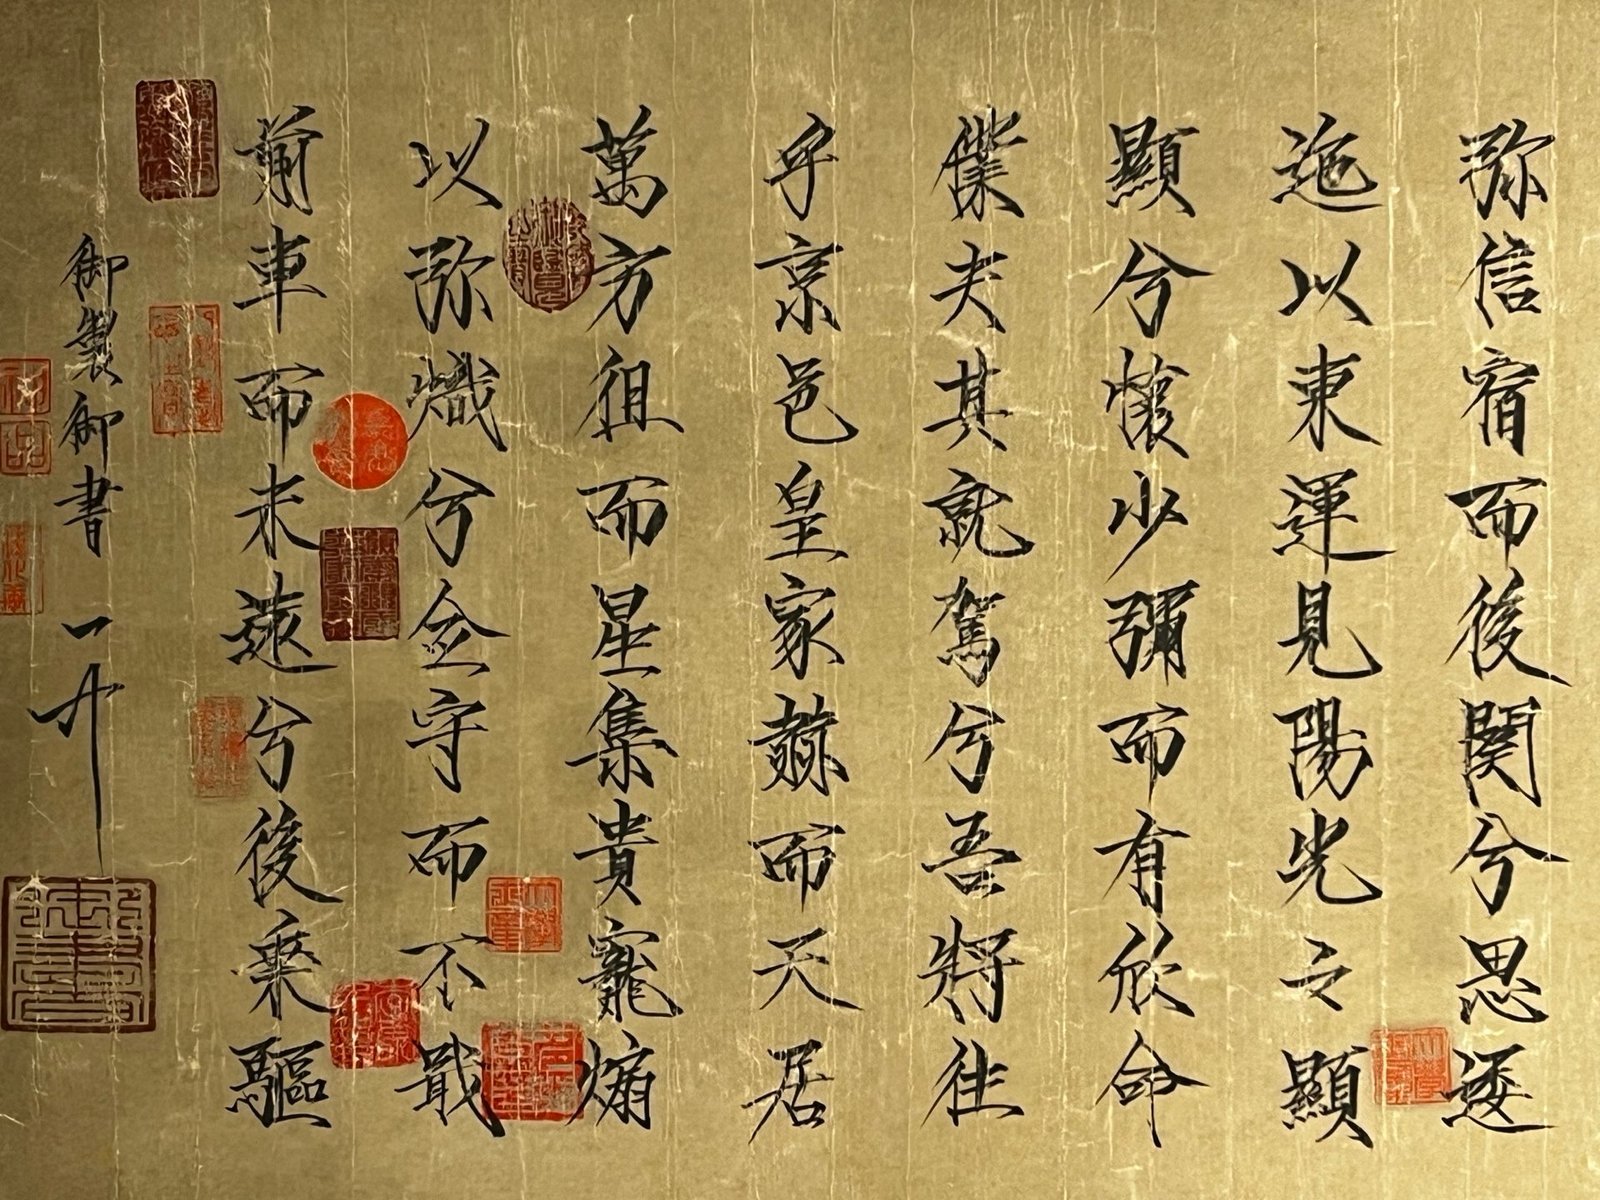 弥信宿而後闋兮思逶
迤以東運見陽光之顯
顯兮懷少弭而有欣命
僕夫其就駕兮吾將往
乎京邑皇家赫而天居
萬方徂而星集貴寵煽
以弥熾兮僉守而不戢
前車而未遠兮後乘驅
御製御書